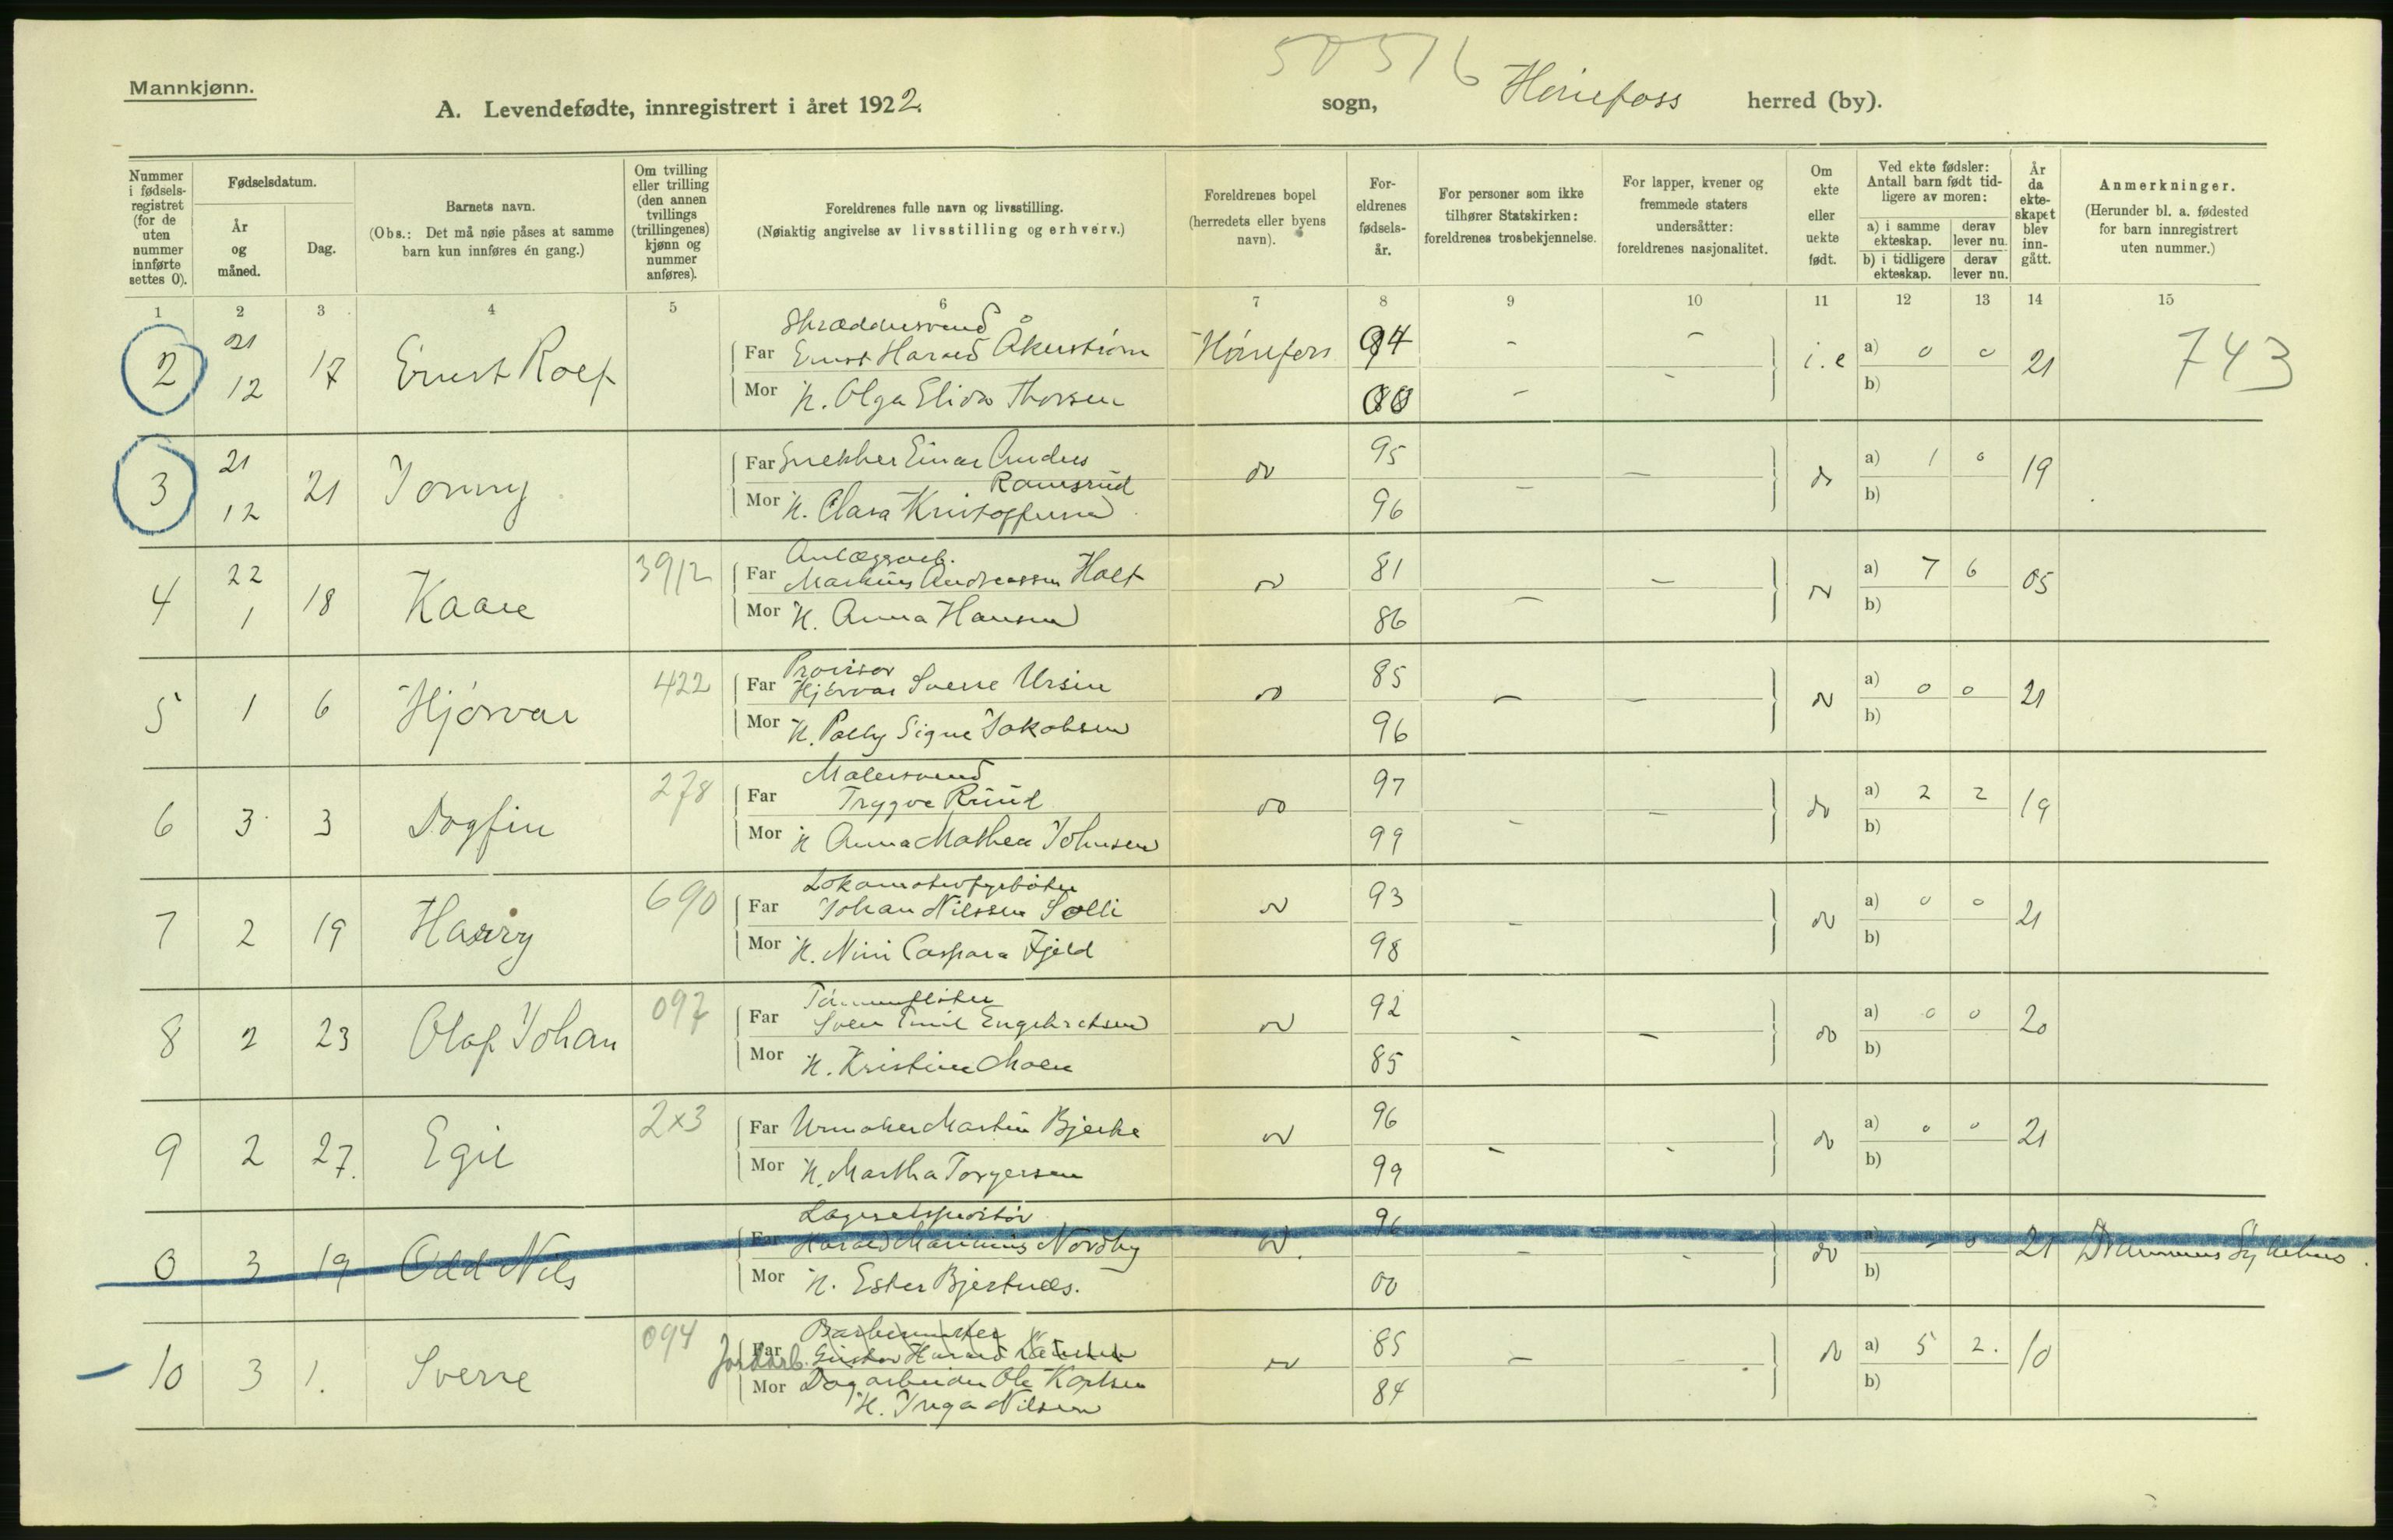 50516
Mannkjønn.
A. Levendefødte, innregistrert i året 1922.
sogn, Hønefoss herred (by).
Nummer i fødselsregistret (for de uten nummer innførte settes 0).
Fødselsdatum.
År og måned.
Dag.
Barnets navn.
(Obs.: Det må nøie påses at samme barn kun innføres én gang.)
Om tvilling eller trilling (den annen tvillings (trillingenes) kjønn og nummer anføres).
Foreldrenes fulle navn og livsstilling.
(Nøiaktig angivelse av livsstilling og erhverv.)
Foreldrenes bopel
(herredets eller byens navn).
Foreldrenes fødselsår.
For personer som ikke tilhører Statskirken: foreldrenes trosbekjennelse.
For lapper, kvener og fremmede staters undersåtter: foreldrenes nasjonalitet.
Om ekte eller uekte født.
Ved ekte fødsler: Antall barn født tidligere av moren:
a) i samme ekteskap.
derav lever nu.
b) i tidligere ekteskap.
derav lever nu.
År da ekteskapet blev inngått.
Anmerkninger.
(Herunder bl. a. fødested for barn innregistrert uten nummer.)
1 2 3 4 5 6 7 8 9 10 11 12 13 14 15
2 21 12 17 Ernst Rolf
Skræddersvend
Far Ernst Harald Åkerstrøm Hønefoss 94 - - i.e a) 0 0 21 743
Mor H. Olga Elida Thorsen 00 - - b)
3 21 12 21 Jonny
Far Snekker Einar Anders Ramsrud do 95 - - do a) 1 0 19
Mor H. Clara Kristoffersen 96 b)
4 22 1 18 Kaare 3912
Anlægsarb.
Far Markus Andreassen Holt do 81 - - do a) 7 6 05
Mor H. Anna Hansen 86 b)
5 1 6 Hjørvar 422
Provisor
Far Hjørvar Sverre Ursin do 85 - - do a) 0 0 21
Mor H. Polly Signe Jakobsen 96 b)
6 3 3 Dagfin 278
Malersvend
Far Trygve Ruud do 97 - - do a) 2 2 19
Mor H Anna Mathea Johnsen 99 b)
7 2 19 Harry 690
Lokomotivfyrbøter
Far Johan Nilssen Solli do 93 - - do a) 0 0 21
Mor H. Nini Caspara Fjeld 98 b)
8 2 23 Olaf Johan 097
Tømmerfløter
Far Sven Emil Engebretsen do 92 - - do a) 0 0 20
Mor H. Kristine Moen 85 b)
9 2 27. Egil 2x3
Far Urmaker Martin Bjerke do 96 - - do a) 0 0 21
Mor H. Martha Torgersen 99 b)
0 3 19 Odd Nils
Lagerekspeditør
Far Harald Marinius Nordby do. 96 - - do a) - 0 21 Drammens Sykehus.
Mor H. Ester Bjertnæs. 00 b)
10 3 1. Sverre 094
Barbermester
Far Gustav Harald
Jordarb. do 85 - - do a) 5 2. 10
Mor Dagarbeider Ole Karlsen
H. Inga Nilsen 84 b)